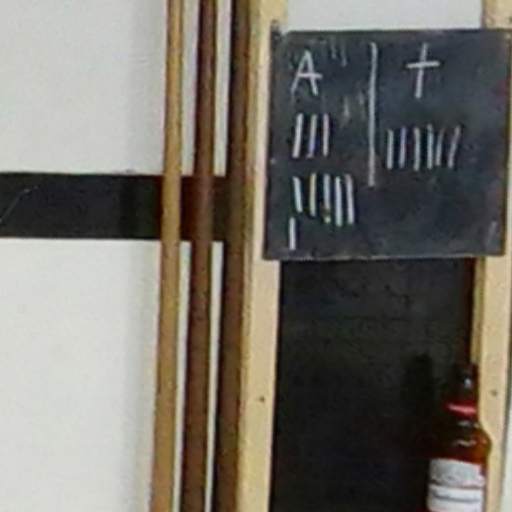 A | +
||| ||||||
|||||
|